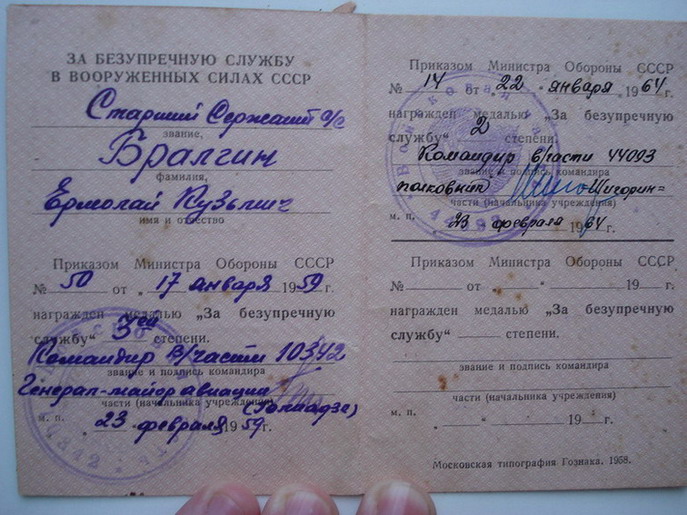 ЗА БЕЗУПРЕЧНУЮ СЛУЖБУ
В ВООРУЖЕННЫХ СИЛАХ СССР
Старший Сержант с/с
звание,
Бралгин
фамилия,
Ермолай Кузьмич
имя и отчество
Приказом Министра Обороны СССР
№ 50 от 17 января 1959 г.
награжден медалью „За безупречную
службу“ 3ей степени.
Командир В/части 10342
звание и подпись командира
Генерал-майор авиации
части (начальника учреждения)
м. п. 23 февраля 1959 г.
Приказом Министра Обороны СССР
№ 14 от 22 января 1964 г.
награжден медалью „За безупречную
службу“ 2 степени.
Командир в/части 44093
звание и подпись командира
полковник Шигорин
части (начальника учреждения)
м. п. 23 февраля 1964 г.
Приказом Министра Обороны СССР
№ от 19 г.
награжден медалью „За безупречную
службу“ степени.
звание и подпись командира
части (начальника учреждения)
м. п. 19 г.
Московская типография Гознака. 1958.